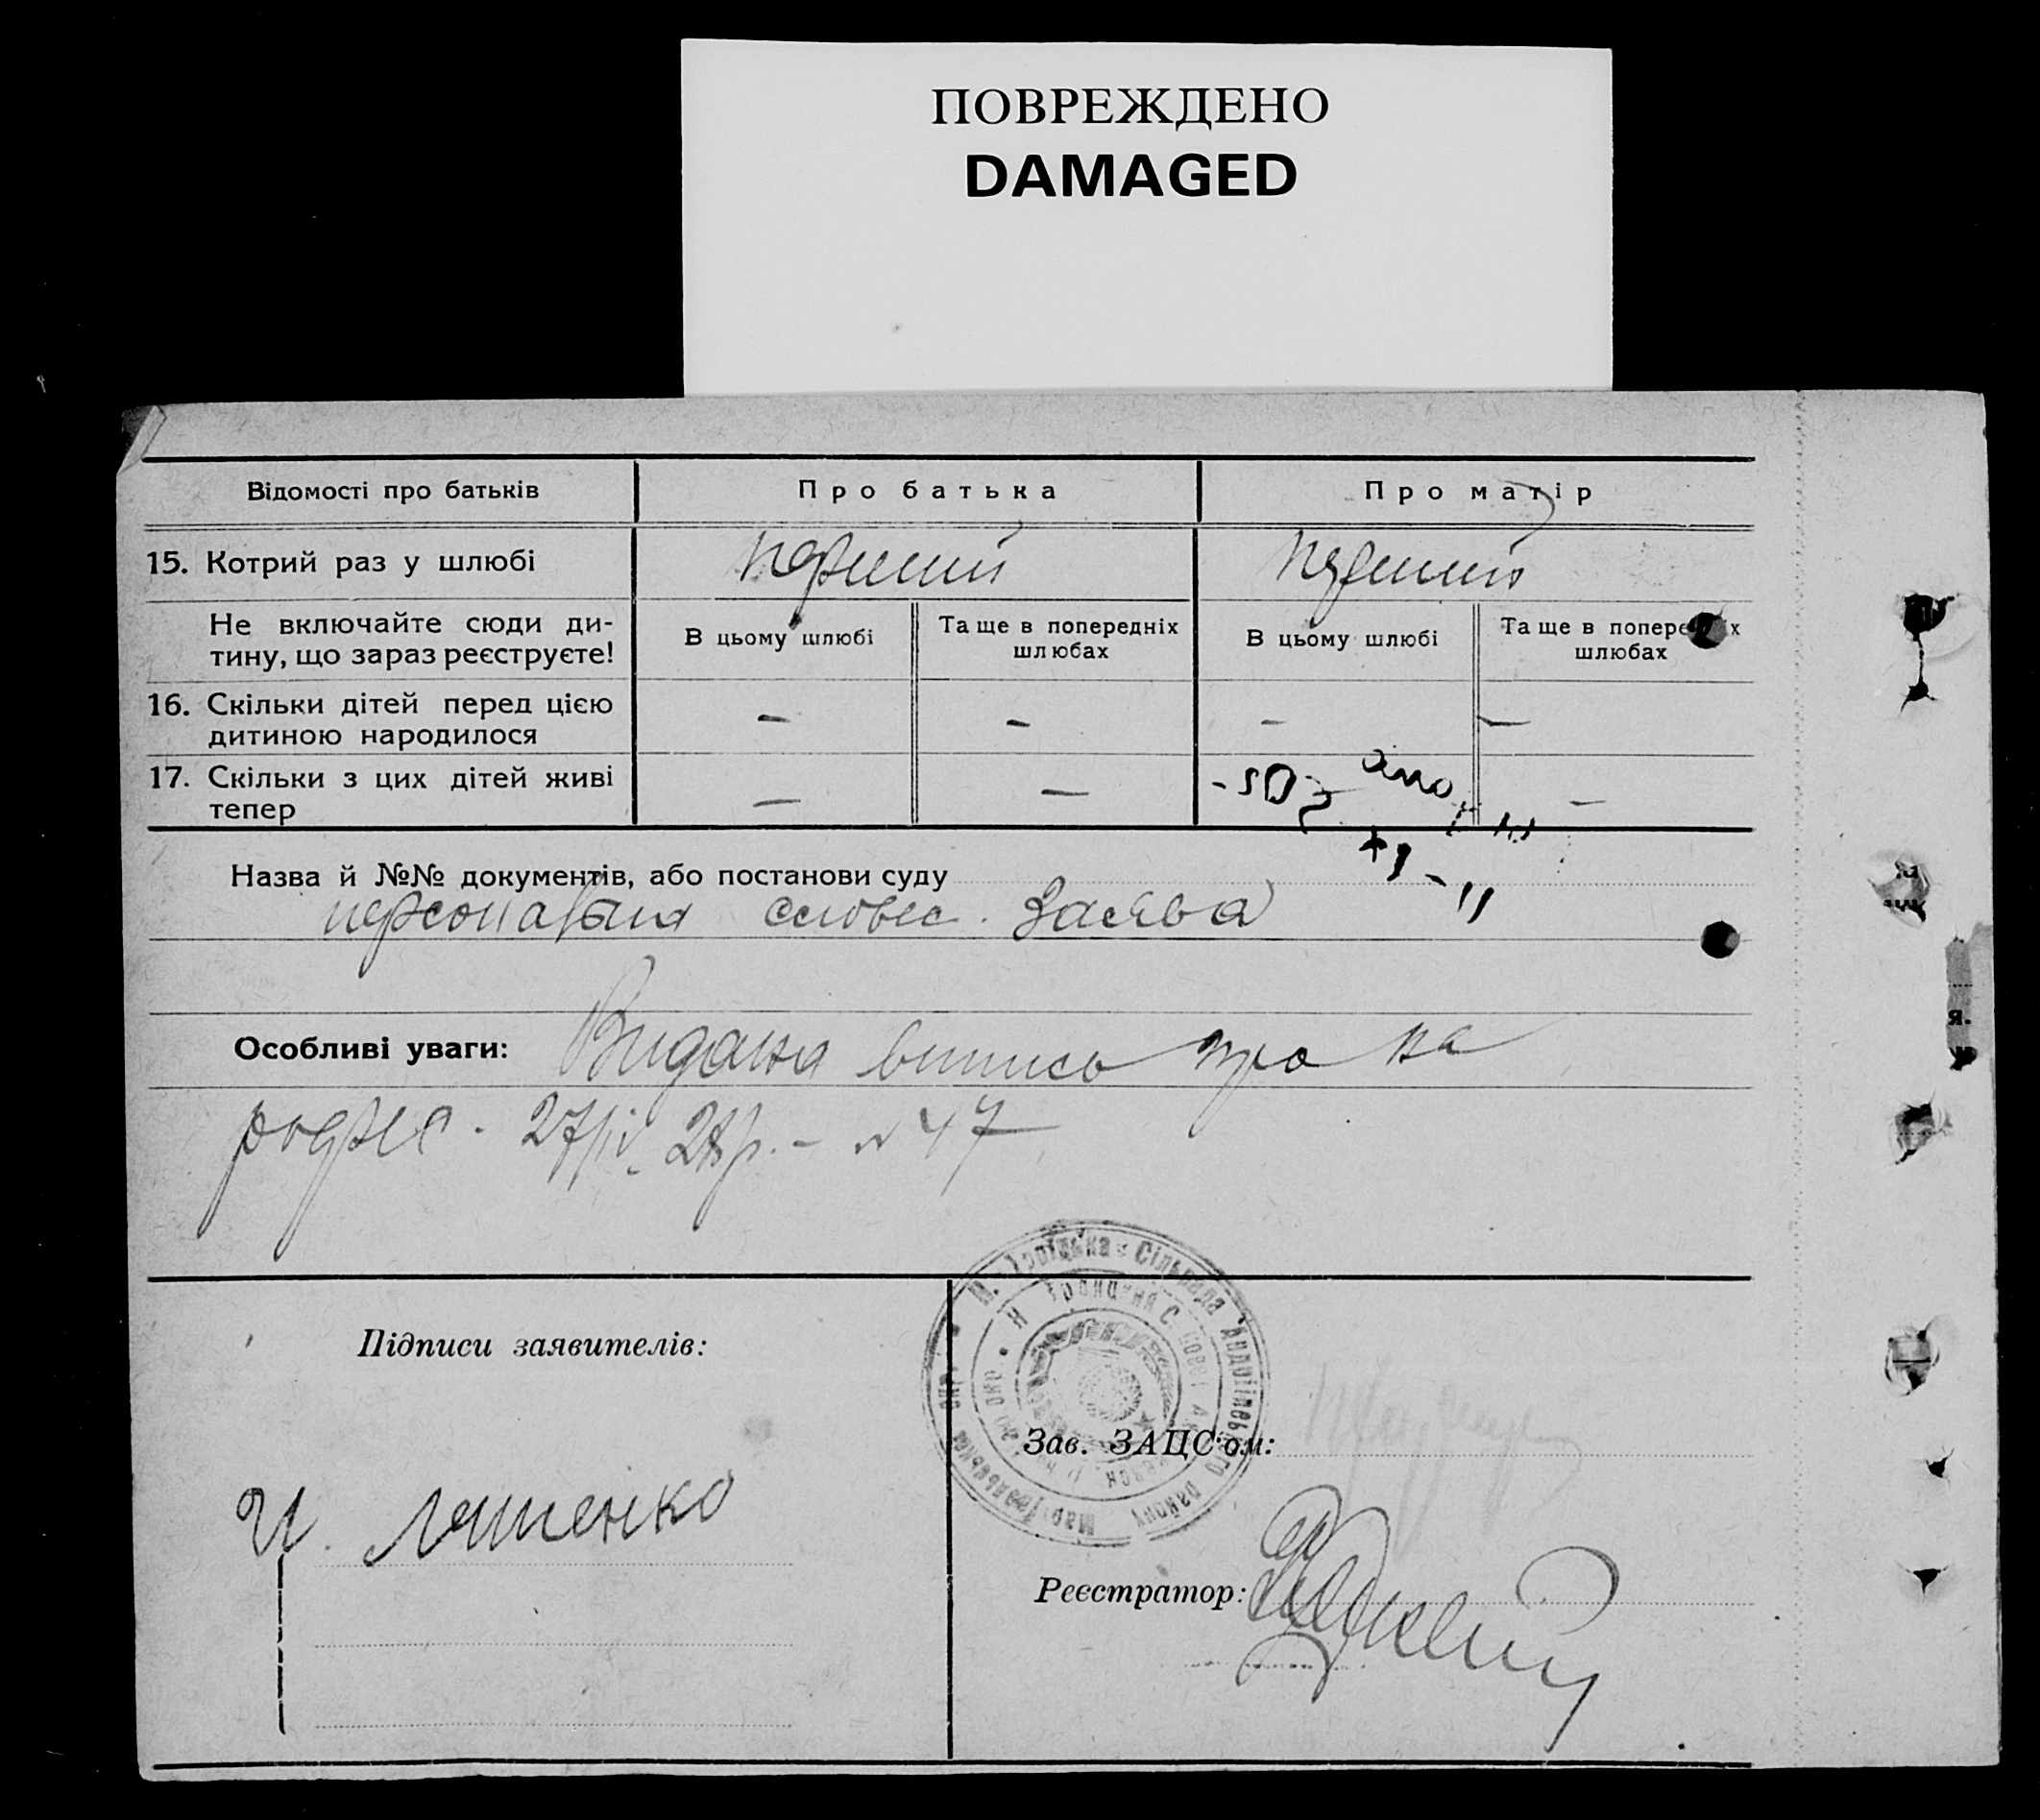 ПОВРЕЖДЕНО
DAMAGED
Відомості про батьків
Про батька
Про матір
15. Котрий раз у шлюбі
перший
перший
Не включайте сюди ди-
тину, що зараз реєструєте!
В цьому шлюбі
Та ще в попередніх
шлюбах
В цьому шлюбі
Та ще в попере х
шлюбах
16. Скільки дітей перед цією
дитиною народилося
—
—
—
—
17. Скільки з цих дітей живі
тепер
—
—
—
Назва й №№ документів, або постанови суду
персональна словес. заєва
Особливі уваги: Видана випись про на
родже. 27/IV 28р. – N 47
М. Троїцька Сільрада Андріївського району Маріупольська окр.
Підписи заявителів:
Зав. ЗАЦС'ом:
И. Ляшенко
Реєстратор:
я.